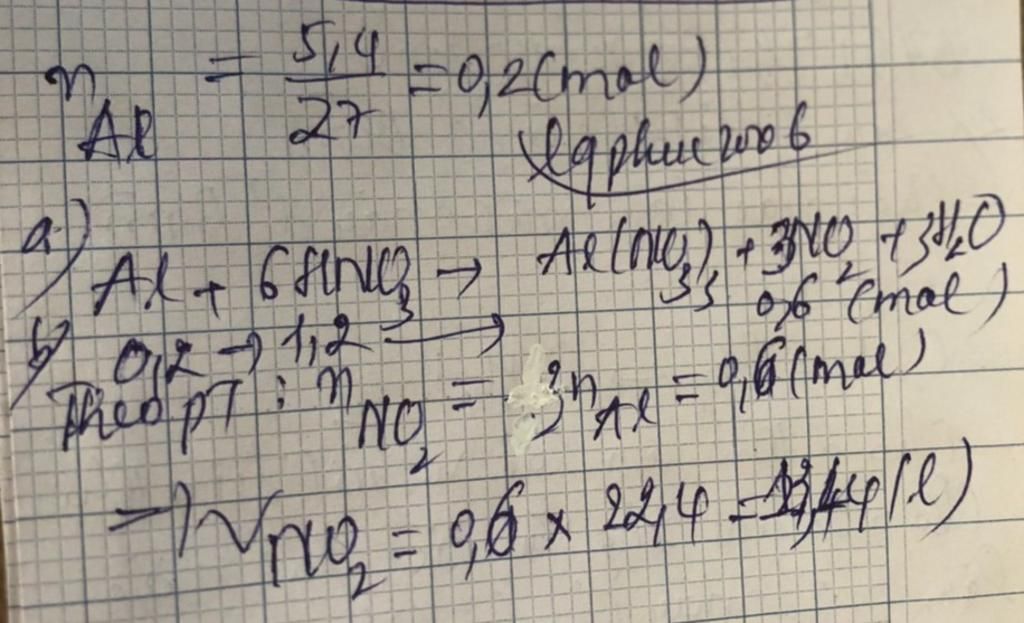 n_Al = 5,4/27 = 0,2 (mol)
a) Al + 6HNO3 → Al(NO3)3 + 3NO2 + 3H2O
b) 0,2 → 1,2 → 0,6 (mol)
Theo pT : n_NO2 = 3n_Al = 0,6 (mol)
=> V_NO2 = 0,6 x 22,4 = 13,44 (l)